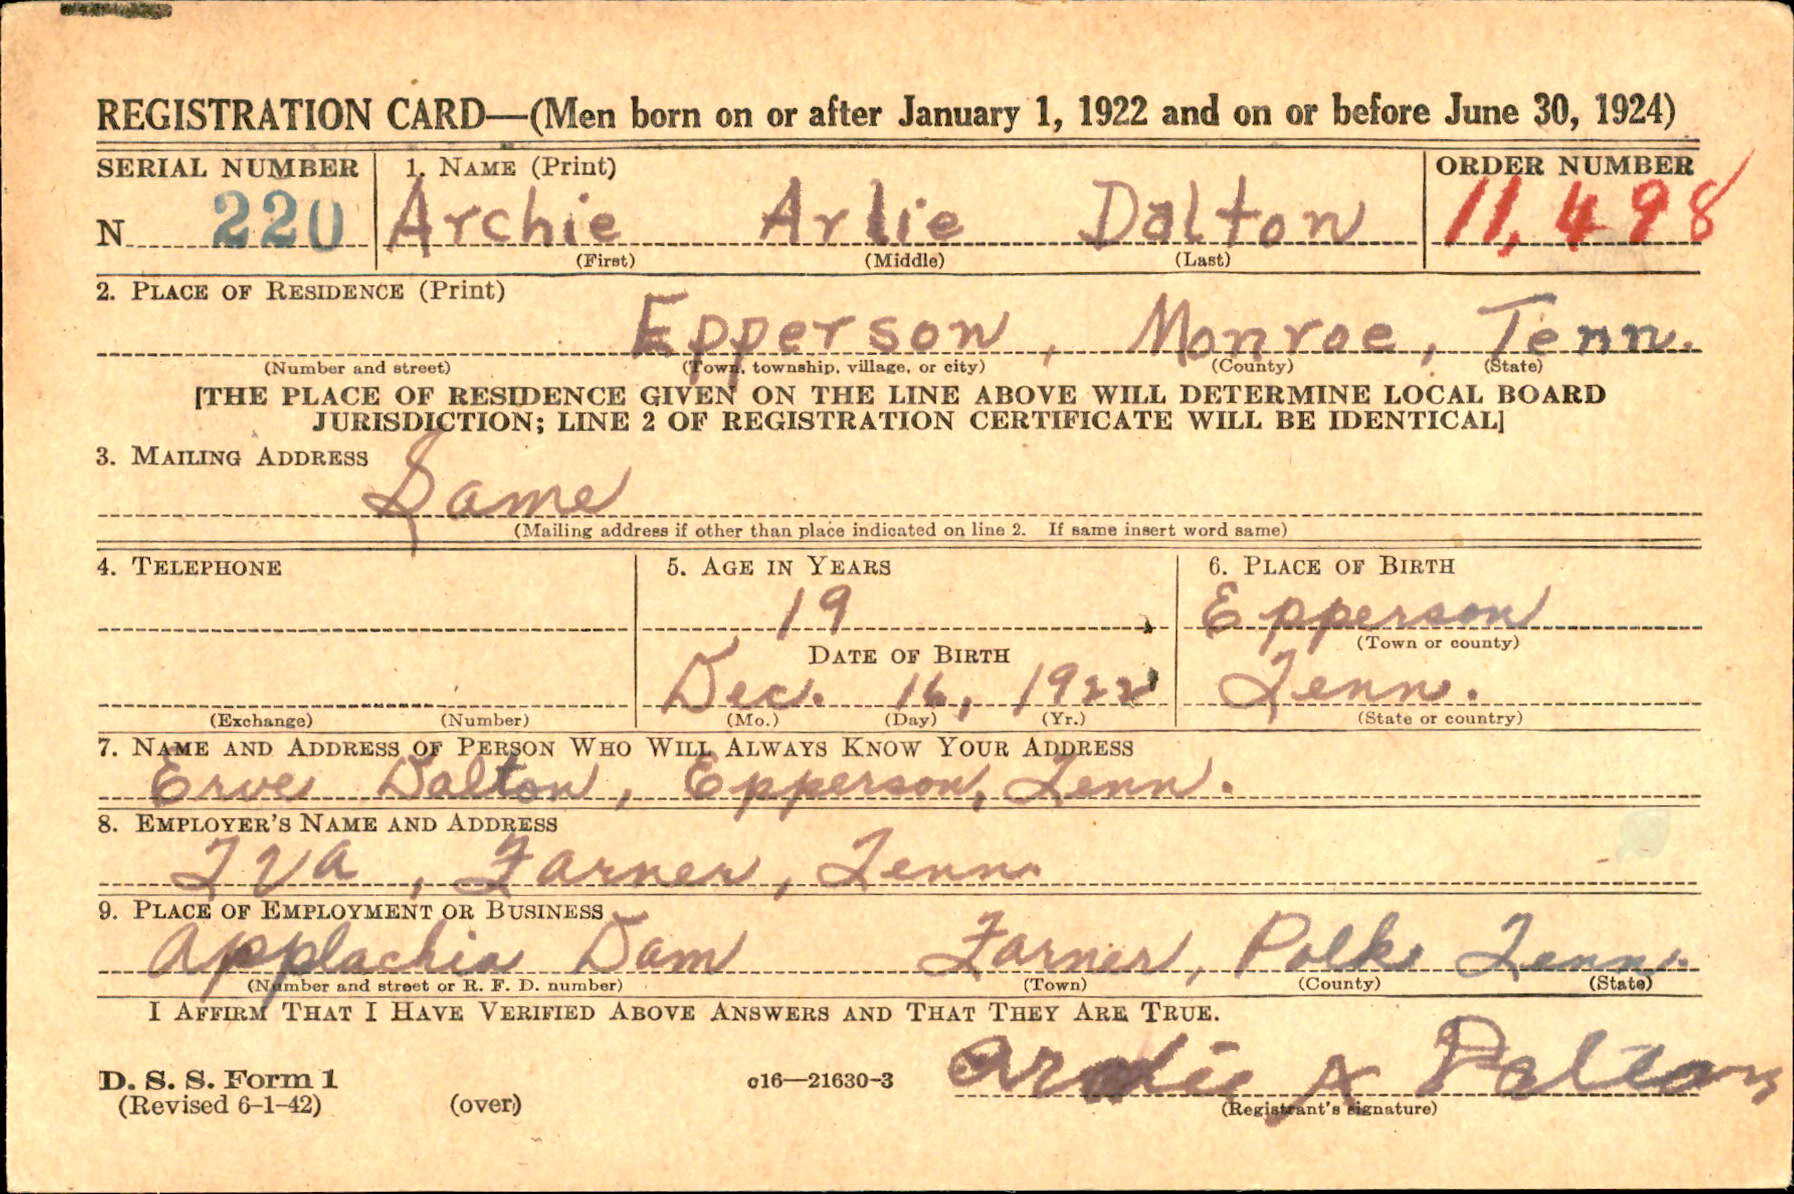 REGISTRATION CARD—(Men born on or after January 1, 1922 and on or before June 30, 1924)
SERIAL NUMBER 1. NAME (Print) ORDER NUMBER
N 220 Archie Arlie Dalton 11,498
(First) (Middle) (Last)
2. PLACE OF RESIDENCE (Print)
Epperson, Monroe, Tenn.
(Number and street) (Town, township, village, or city) (County) (State)
[THE PLACE OF RESIDENCE GIVEN ON THE LINE ABOVE WILL DETERMINE LOCAL BOARD
JURISDICTION; LINE 2 OF REGISTRATION CERTIFICATE WILL BE IDENTICAL]
3. MAILING ADDRESS
Same
(Mailing address if other than place indicated on line 2. If same insert word same)
4. TELEPHONE 5. AGE IN YEARS 6. PLACE OF BIRTH
19 Epperson
(Town or county)
DATE OF BIRTH
Dec. 16, 1922 Tenn.
(Exchange) (Number) (Mo.) (Day) (Yr.) (State or country)
7. NAME AND ADDRESS OF PERSON WHO WILL ALWAYS KNOW YOUR ADDRESS
Dalton, Epperson, Tenn.
8. EMPLOYER'S NAME AND ADDRESS
TVA, Farner, Tenn.
9. PLACE OF EMPLOYMENT OR BUSINESS
Applachia Dam Farner, Polk Tenn.
(Number and street or R. F. D. number) (Town) (County) (State)
I AFFIRM THAT I HAVE VERIFIED ABOVE ANSWERS AND THAT THEY ARE TRUE.
D. S. S. Form 1
(Revised 6-1-42) (over) c16—21630-3 A Dalton
(Registrant's signature)